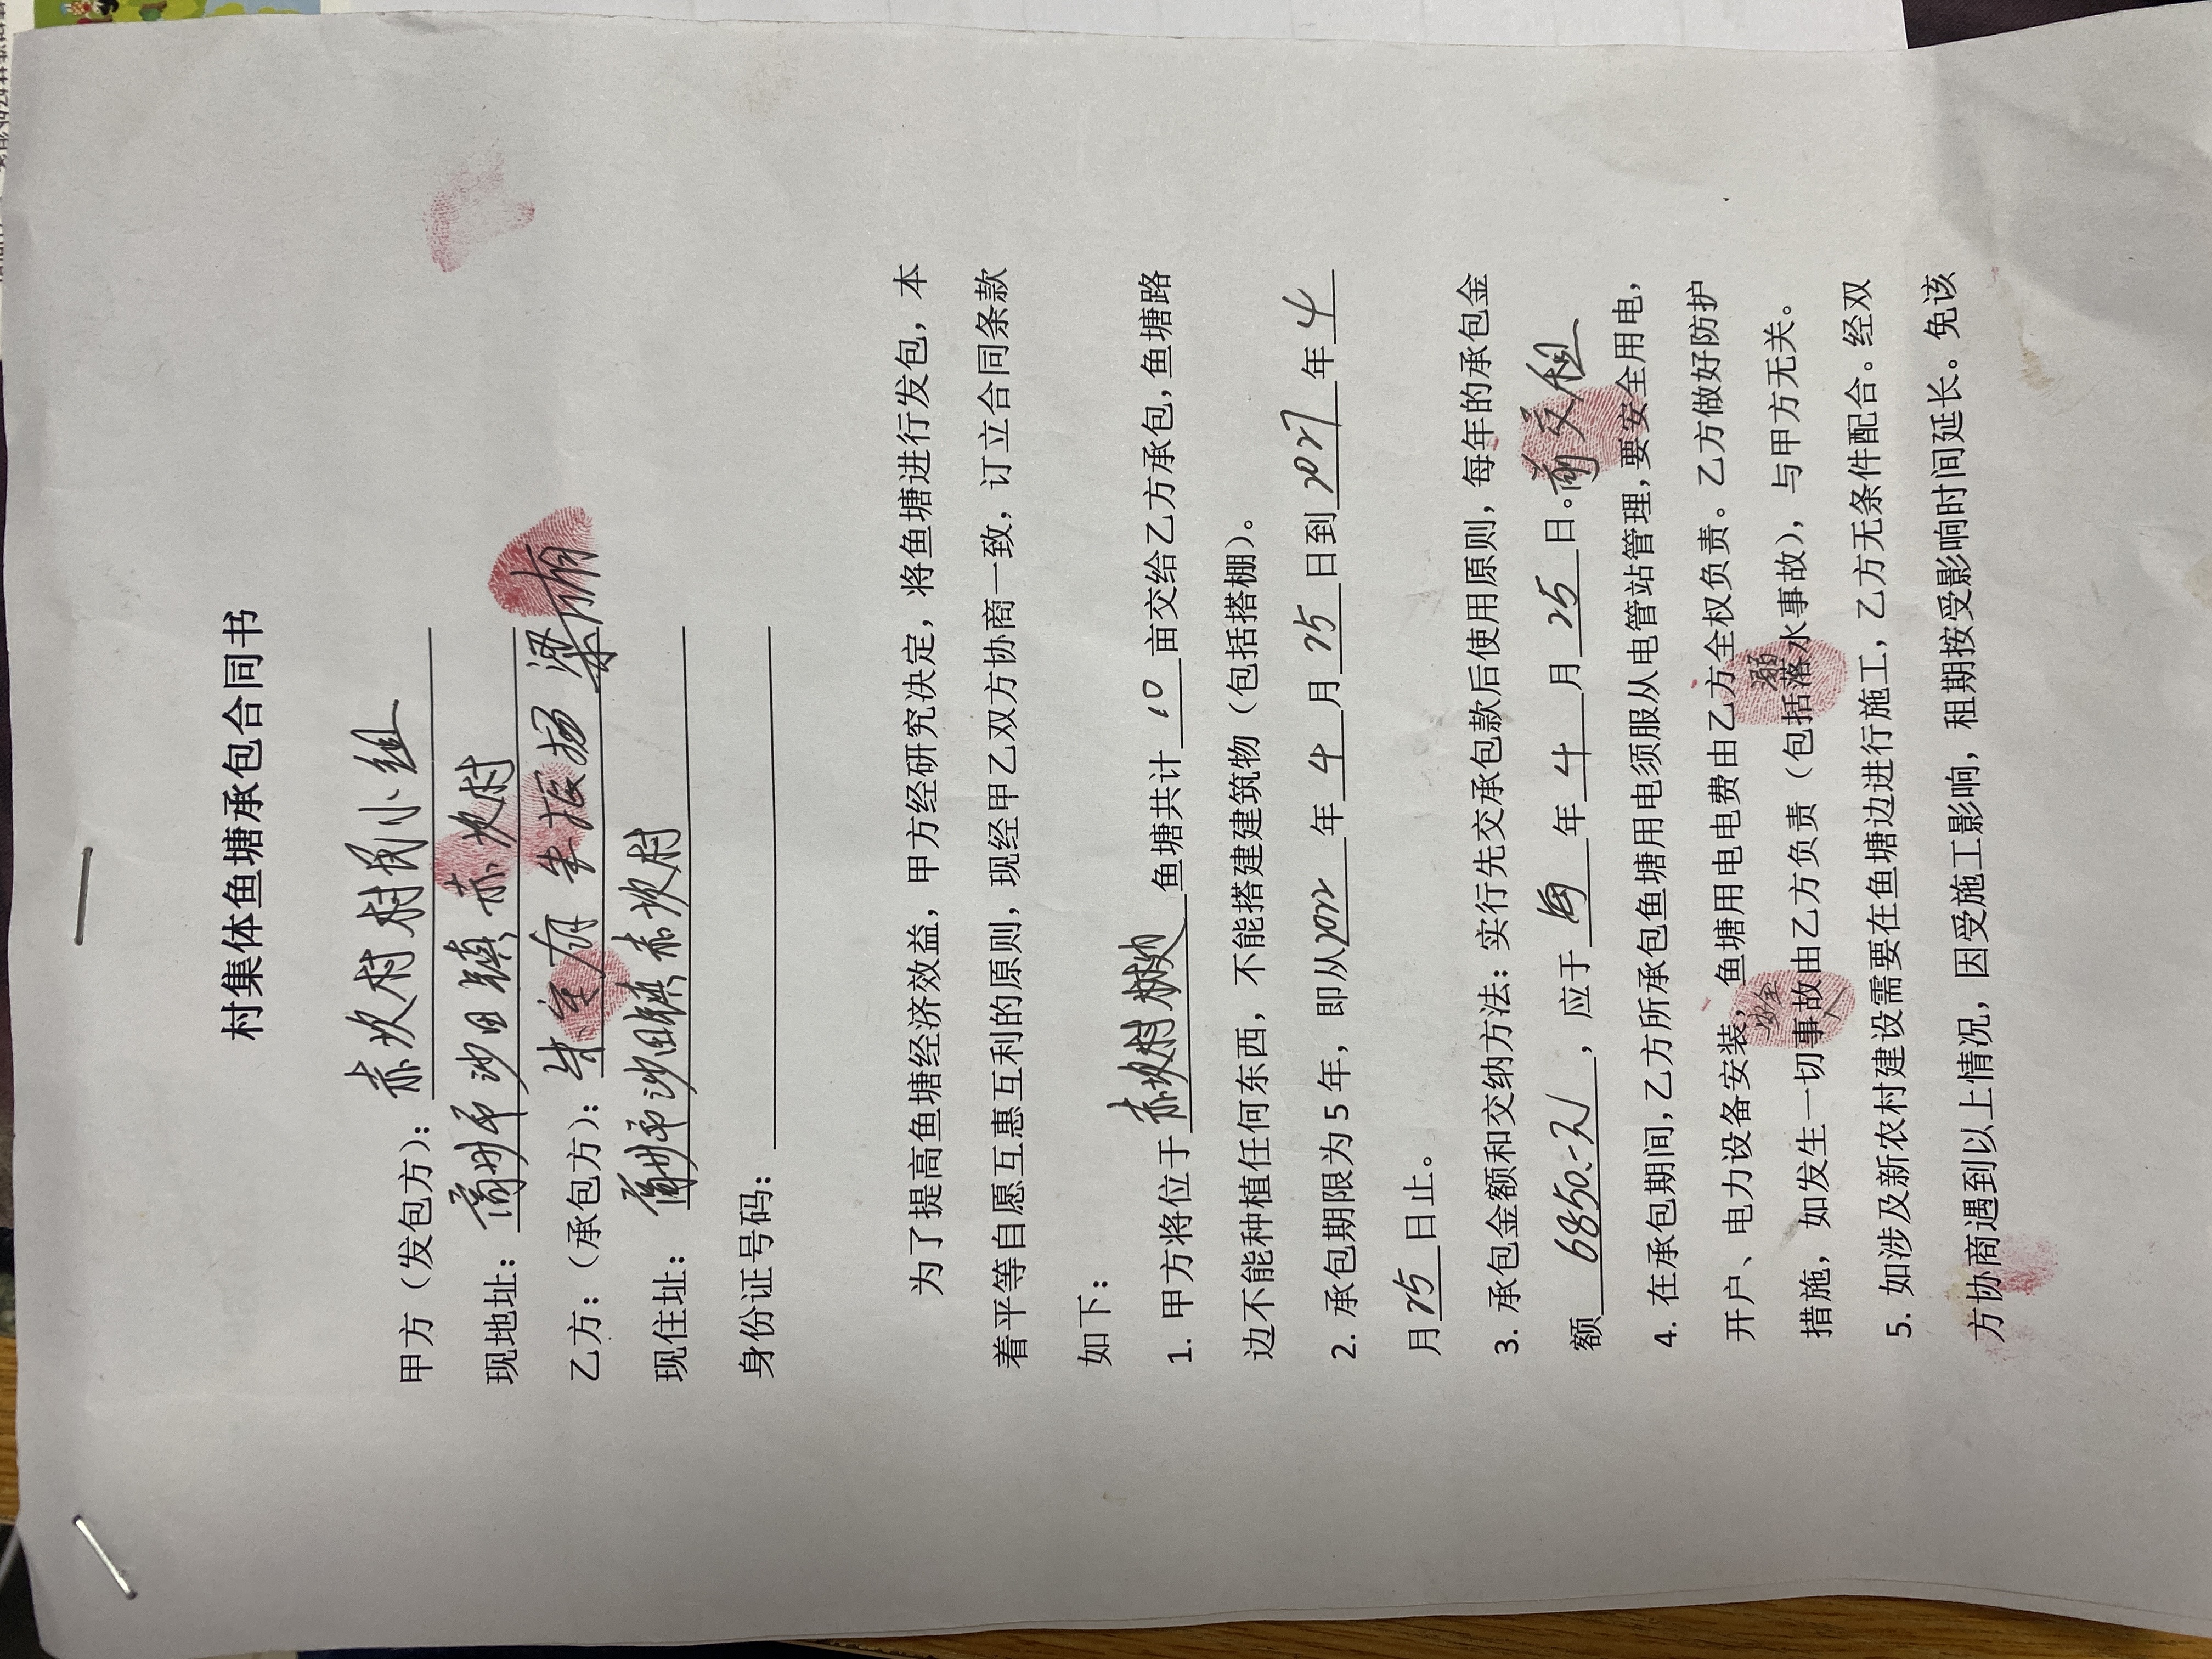 村集体鱼塘承包合同书
甲方（发包方）：赤坎村村委小组
现地址：高州市沙田镇赤坎村
乙方：（承包方）：朱 振扬 梁
现住址：高州市沙田镇赤坎村
身份证号码：
为了提高鱼塘经济效益，甲方经研究决定，将鱼塘进行发包，本
着平等自愿互惠互利的原则，现经甲乙双方协商一致，订立合同条款
如下：
1. 甲方将位于赤坎村 鱼塘共计 10 亩交给乙方承包，鱼塘路
边不能种植任何东西，不能搭建建筑物（包括搭棚）。
2. 承包期限为5年，即从2022年4月25日到2027年4
月25日止。
3. 承包金额和交纳方法：实行先交承包款后使用原则，每年的承包金
额 6850.=元，应于每年4月25日。前交租
4. 在承包期间，乙方所承包鱼塘用电须服从电管站管理，要安全用电，
开户、电力设备安装，鱼塘用电电费由乙方全权负责。乙方做好防护
措施，如发生一切事故由乙方负责（包括落水事故），与甲方无关。
安全
溺
5. 如涉及新农村建设需要在鱼塘边进行施工，乙方无条件配合。经双
方协商遇到以上情况，因受施工影响，租期按受影响时间延长。免该